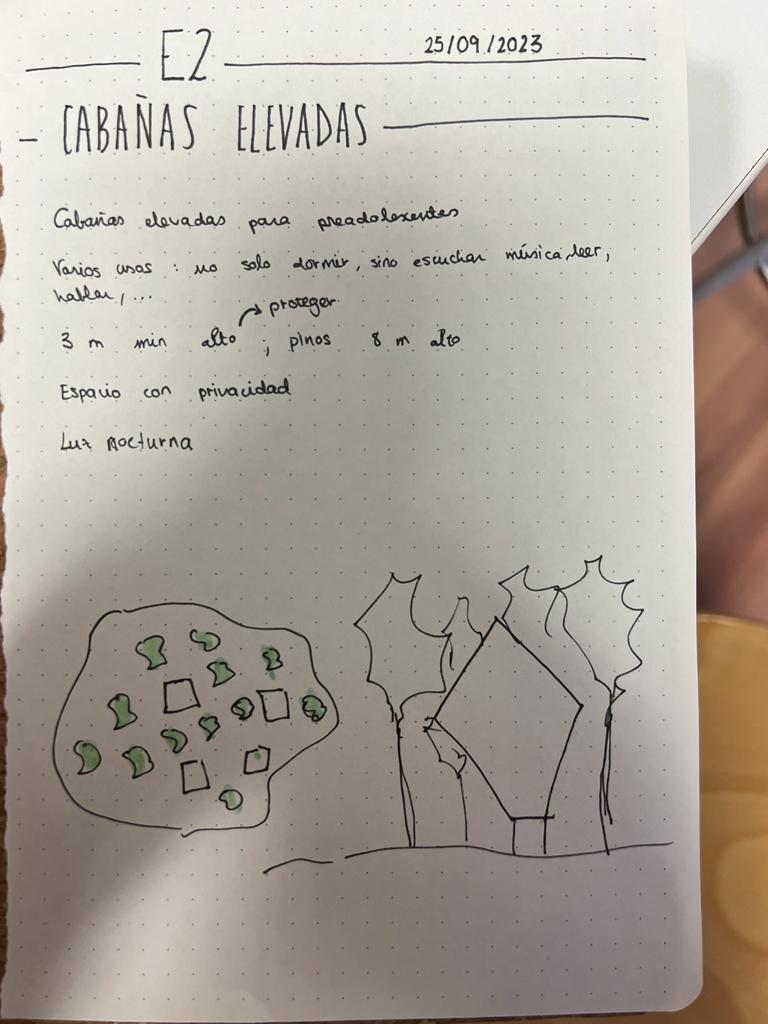 E2
25/09/2023
- CABAÑAS ELEVADAS
Cabañas elevadas para preadolexentes
Varios usos : no solo dormir, sino escuchar música, leer,
hablar, ...
proteger
3 m min alto ; pinos 8 m alto
Espacio con privacidad
Luz Nocturna